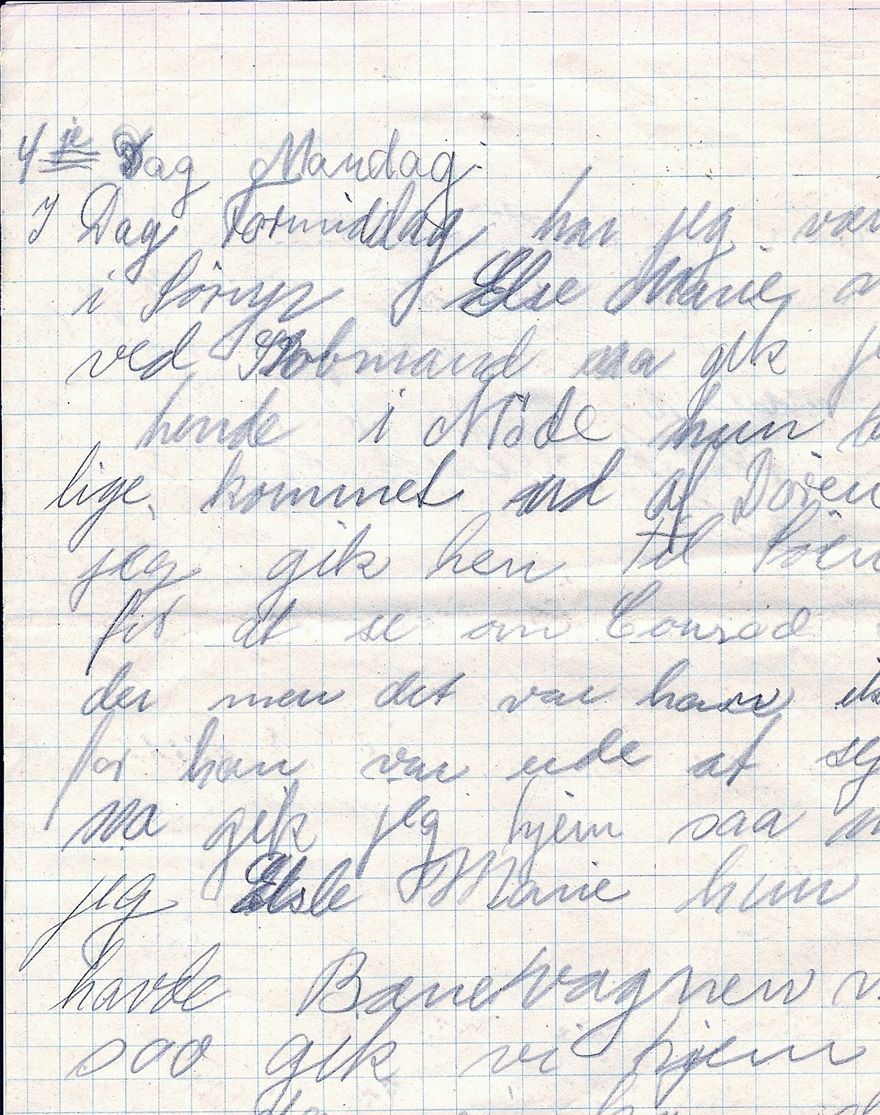 4je Dag Mandag.
I Dag Formiddag har jeg vær
i Sörup Else Marie
ved Kobmand saa gik je
hende i Möde hun
lige kommet ud af Doren
jeg gik hen til Soen
for at se om Conrad
der men det var han ik
for han var ude at sej
saa gik jeg hjem saa m
jeg Else Marie hun
havde Barnevagnen m
saa gik vi hjem